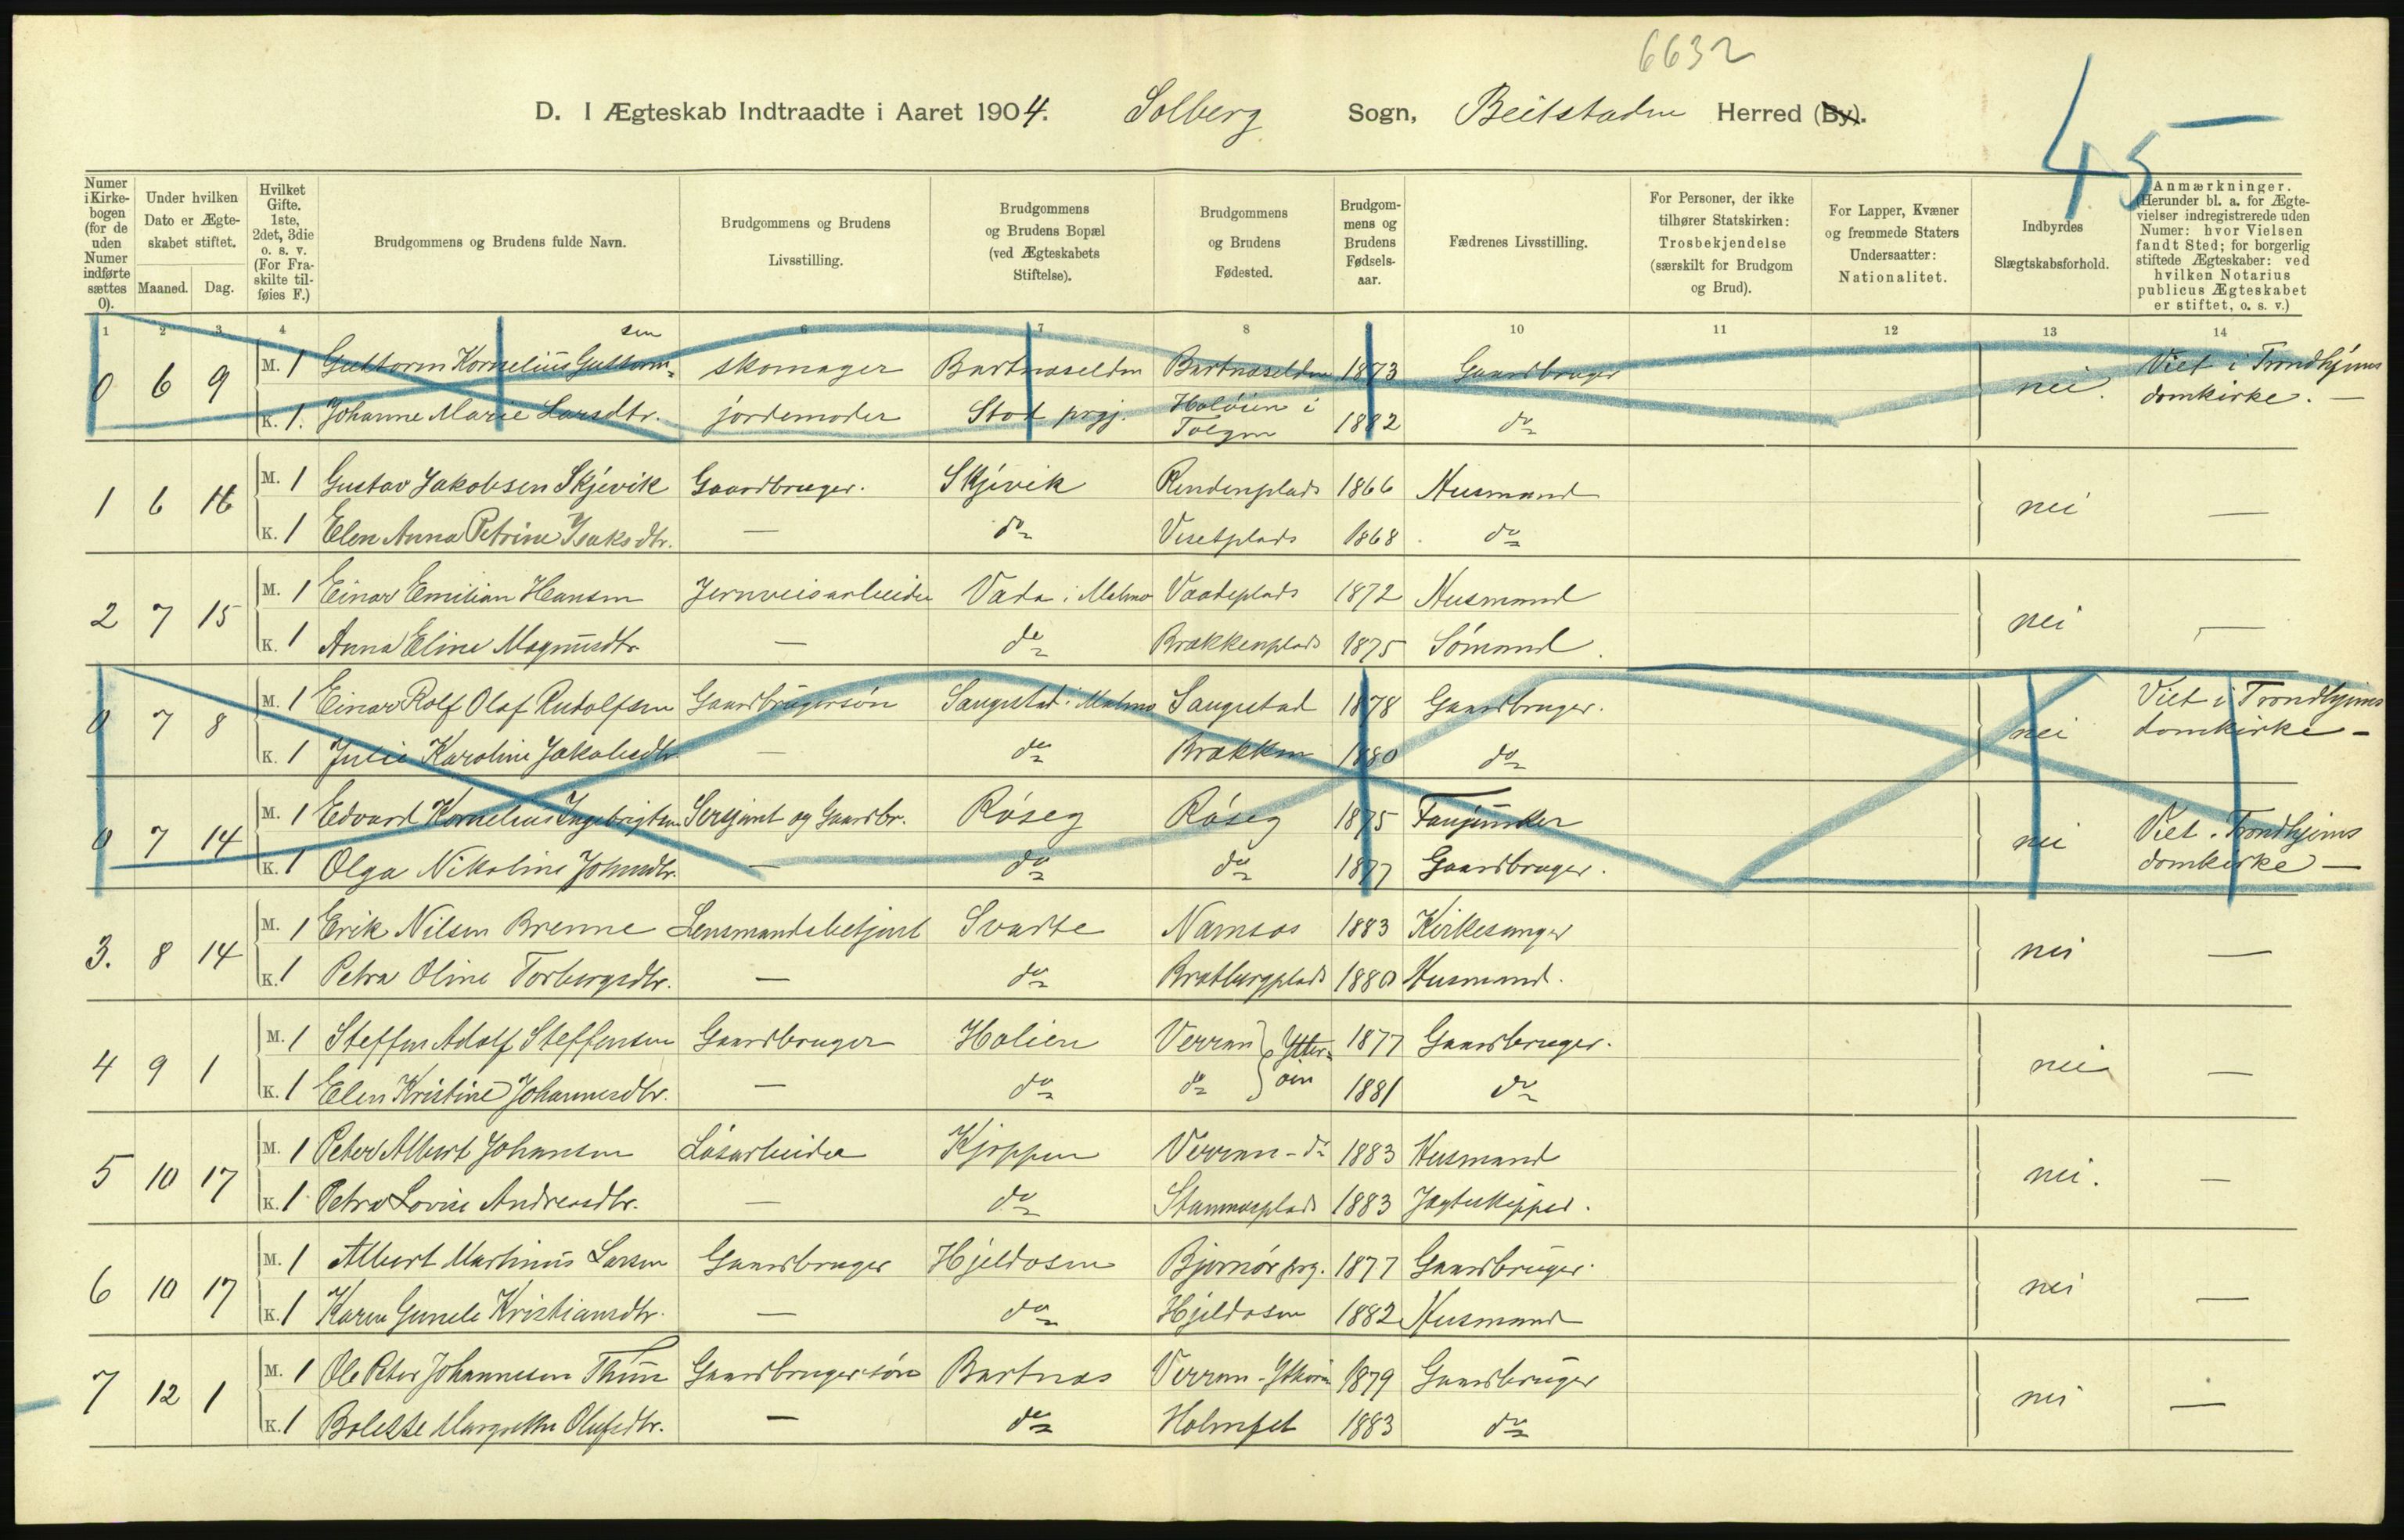 6632
D. I Ægteskab Indtraadte i Aaret 1904. Solberg Sogn, Beitstaden Herred (By).
45
Numer i Kirkebogen (for de uden Numer indførte sættes 0).
Under hvilken Dato er Ægteskabet stiftet.
Maaned. Dag.
Hvilket Gifte. 1ste, 2det, 3die o. s. v. (For Fraskilte tilføies F.)
Brudgommens og Brudens fulde Navn.
Brudgommens og Brudens Livsstilling.
Brudgommens og Brudens Bopæl (ved Ægteskabets Stiftelse).
Brudgommens og Brudens Fødested.
Brudgommens og Brudens Fødselsaar.
Fædrenes Livsstilling.
For Personer, der ikke tilhører Statskirken: Trosbekjendelse (særskilt for Brudgom og Brud).
For Lapper, Kvæner og fremmede Staters Undersaatter: Nationalitet.
Indbyrdes Slægtskabsforhold.
Anmærkninger. (Herunder bl. a. for Ægtevielser indregistrerede uden Numer: hvor Vielsen fandt Sted; for borgerlig stiftede Ægteskaber: ved hvilken Notarius publicus Ægteskabet er stiftet, o. s. v.)
1 2 3 4 6 7 8 10 11 12 13 14
0 6 9 M. 1 Guttorm Kornelius Guttormsen skomager Bartnæseldn Bartnæseldn 1873 Gaardbruger nei. Viet i Trondhjems
K. 1. Johanne Marie Larsdtr. jordemoder Stod prgj. Holöien i Tolgen 1882 do domkirke. —
1 6 16 M. 1 Gustav Jakobsen Skjevik Gaardbruger. Skjevik Rendenplads 1866 Husmand nei —
K. 1 Elen Anna Petrine Isaksdtr. — do Visetplads 1868 do
2 7 15 M. 1 Einar Emilian Hansen Jernveisarbeider Vada i Malmo Vaadeplads 1872 Husmand nei —
K. 1 Anna Eline Magnusdtr — do Brækkenplads 1875 Sömand
0 7 8 M. 1 Einar Rolf Olaf Rudolfsen Gaardbrugersön Saugestad i Malmo Saugestad 1878 Gaardbruger. nei Viet i Trondhjems
K. 1 Julie Karoline Jakobsdtr — do Brækken 1880 do domkirke —
0 7 14 M. 1 Edvard Kornelius Ingebrigtsen Sersjant og Gaardbr. Röseg Röseg 1875 Fanejunker nei Viet i Trondhjems
K. 1 Olga Nikoline Johnsdtr. — do do 1877 Gaardbruger. domkirke —
3. 8 14 M. 1 Erik Nilsen Brenne Lensmandsbetjent Svarte Namsos 1883 Kirkesanger nei —
K. 1 Petra Oline Torbergsdtr. — do Bratbergplads 1880 Husmand.
4 9 1 M. 1 Steffen Adolf Steffensen Gaardbruger Holien Verran } Ytter- 1877 Gaardbruger. nei —
K. 1 Elen Kristine Johannesdtr. — do do öen 1881 do
5 10 17 M. 1 Peter Albert Johansen Lösarbeider Kjeppen Verran - do 1883 Husmand nei. —
K. 1 Petra Lovise Andreasdtr. — do Stamnesplads 1883 Jagteskipper.
6 10 17 M. 1 Albert Martinus Larsen Gaardbruger Hjeldosen Bjørnör prg. 1877 Gaardbruger. nei —
K. 1 Karen Gunele Kristiansdtr. — do Hjeldosen 1882 Husmand
7 12 1 M. 1 Ole Peter Johannesen Thun Gaardbrugersön Bartnæs Verran - Ytteröen 1879 Gaardbruger nei —
K. 1 Bolette Margrethe Olufsdtr. — do Holmset 1883 do